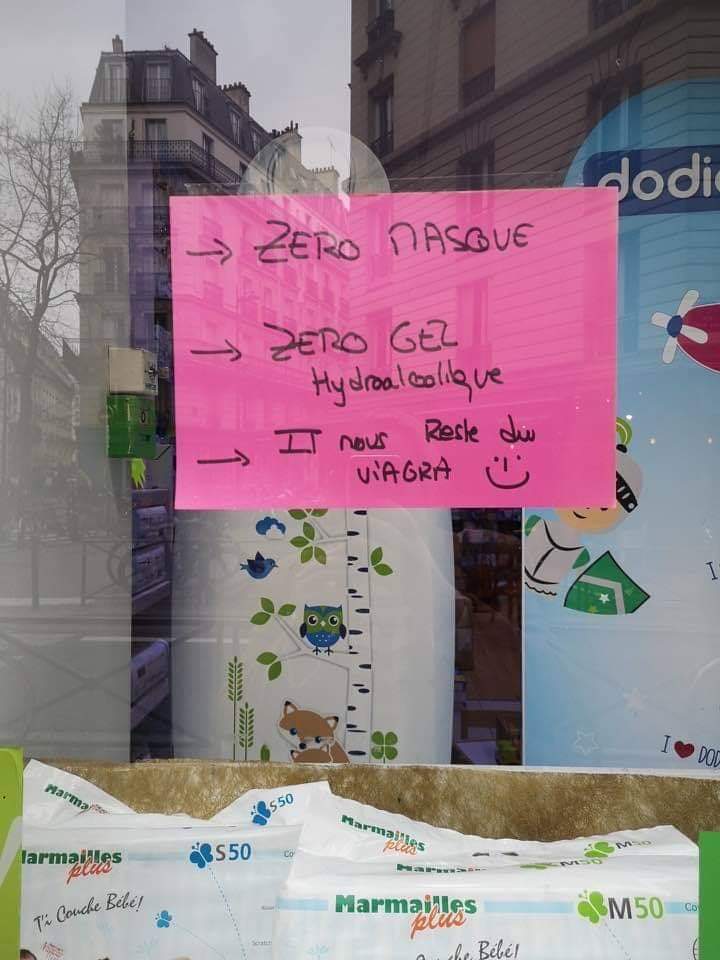 dodi
→ ZERO MASQUE
→ ZERO GEL
Hydroalcoolique
→ Il nous Reste du
VIAGRA
I ♥ DOD
Marma
S50
Marmailles
plus
S50
T'i Couche Bébé!
Marmailles
plus
M50
Marmailles
plus
M50
Bébé!